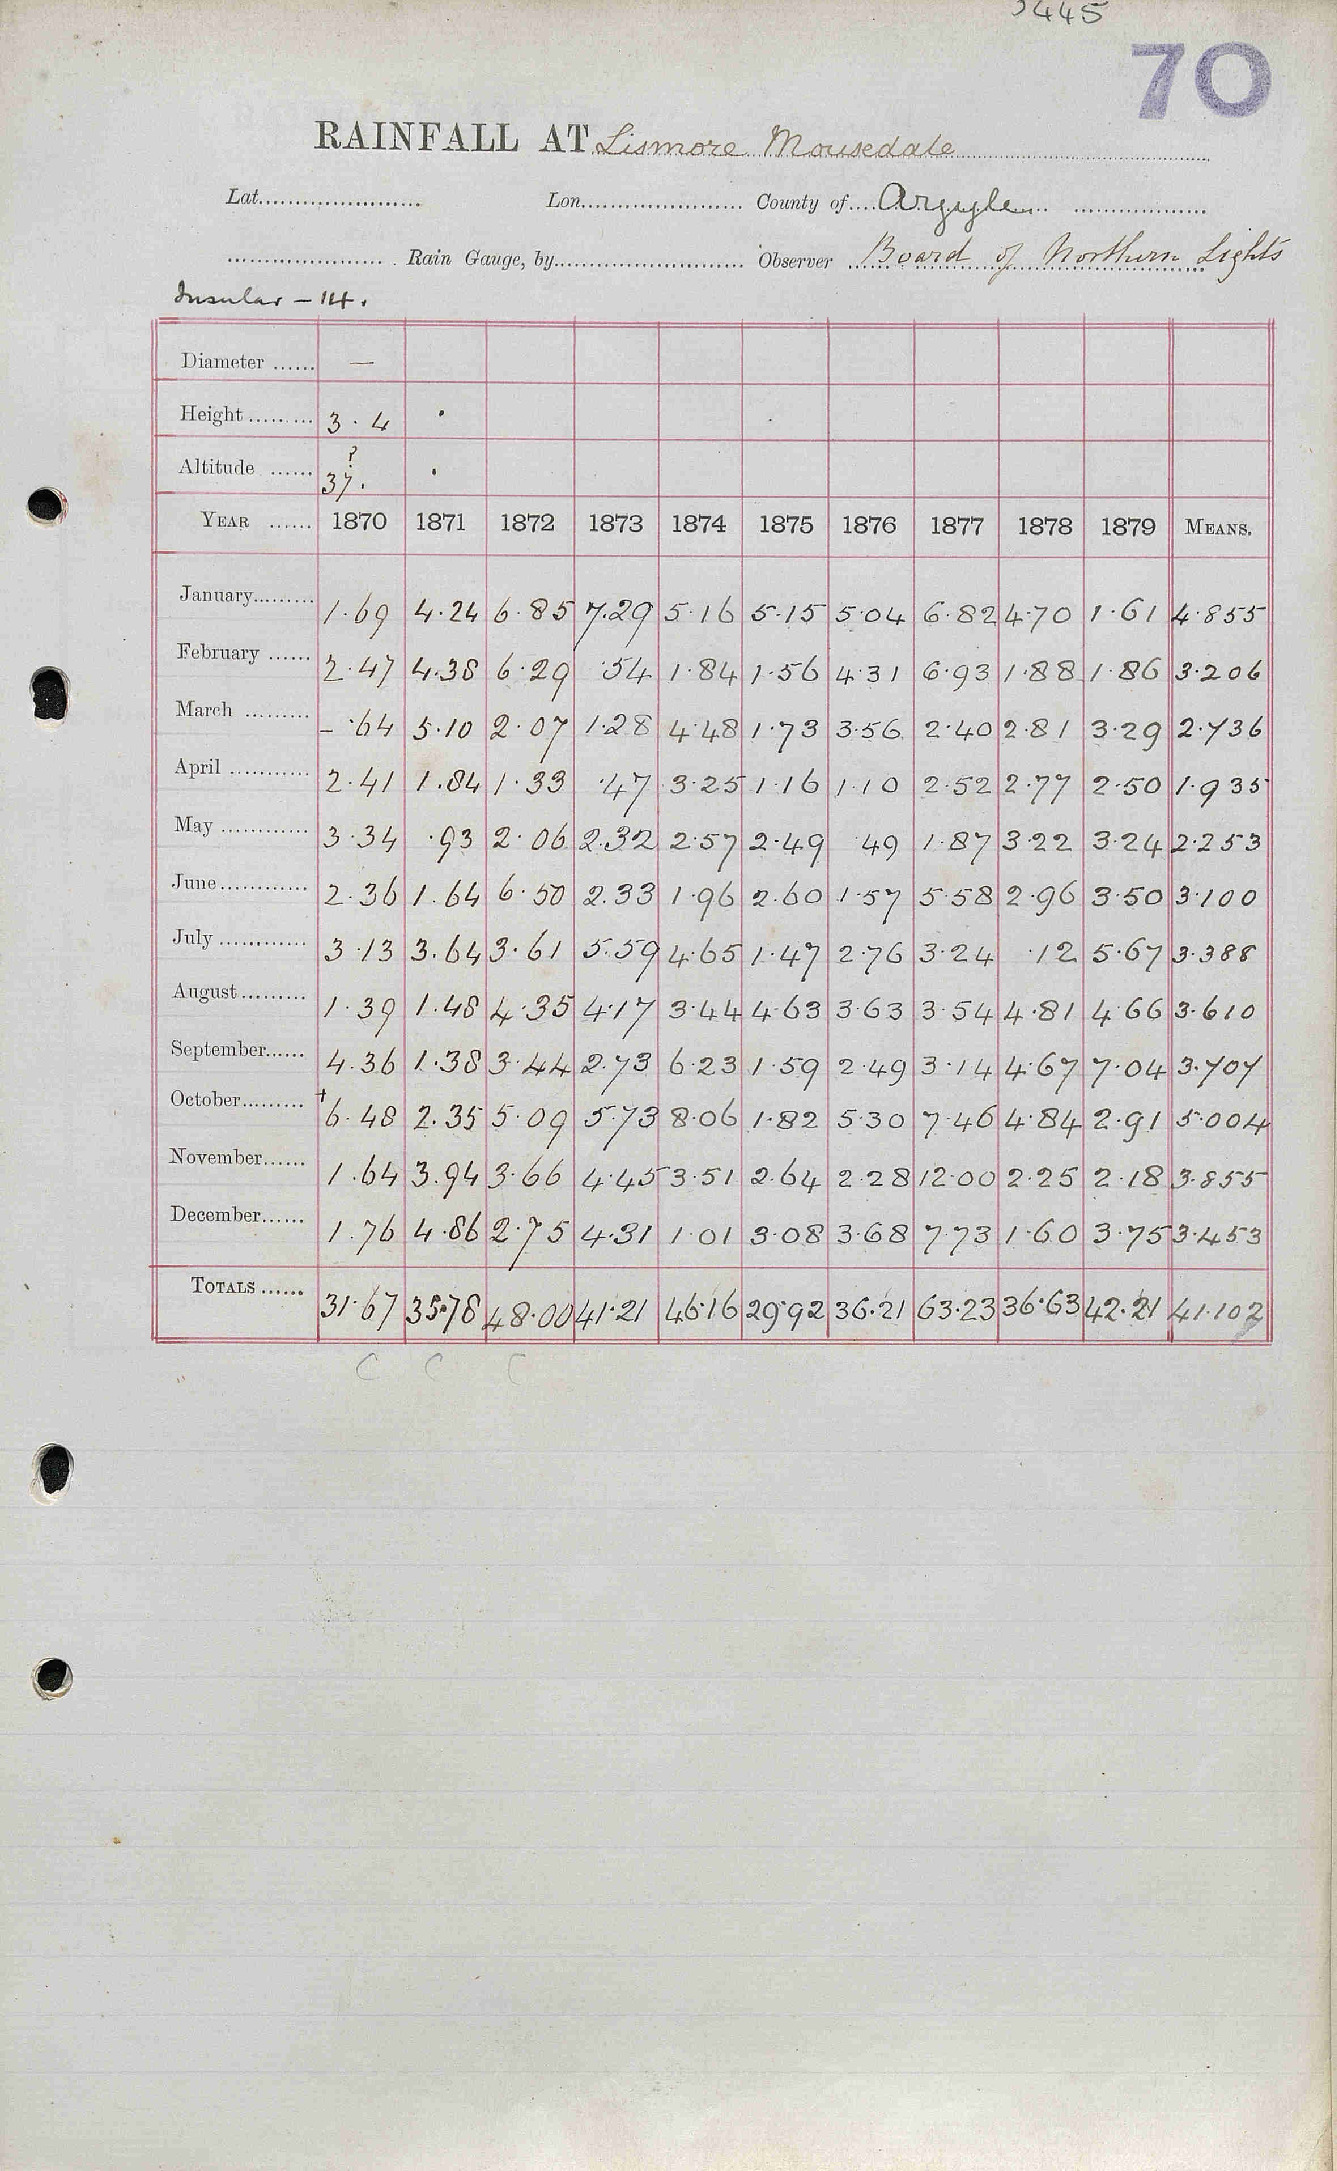 3445
70
RAINFALL AT Lismore Mousedale
Lat. Lon. County of Argyle
Rain Gauge, by Observer Board of Northern Lights
Insular - 14.
Diameter —
Height 3.4
Altitude ? 37.
YEAR 1870 1871 1872 1873 1874 1875 1876 1877 1878 1879 MEANS.
January 1.69 4.24 6.85 7.29 5.16 5.15 5.04 6.82 4.70 1.61 4.855
February 2.47 4.38 6.29 .54 1.84 1.56 4.31 6.93 1.88 1.86 3.206
March - .64 5.10 2.07 1.28 4.48 1.73 3.56 2.40 2.81 3.29 2.736
April 2.41 1.84 1.33 .47 3.25 1.16 1.10 2.52 2.77 2.50 1.935
May 3.34 .93 2.06 2.32 2.57 2.49 49 1.87 3.22 3.24 2.253
June 2.36 1.64 6.50 2.33 1.96 2.60 1.57 5.58 2.96 3.50 3.100
July 3.13 3.64 3.61 5.59 4.65 1.47 2.76 3.24 .12 5.67 3.388
August 1.39 1.48 4.35 4.17 3.44 4.63 3.63 3.54 4.81 4.66 3.610
September 4.36 1.38 3.44 2.73 6.23 1.59 2.49 3.14 4.67 7.04 3.707
October +6.48 2.35 5.09 5.73 8.06 1.82 5.30 7.46 4.84 2.91 5.004
November 1.64 3.94 3.66 4.45 3.51 2.64 2.28 12.00 2.25 2.18 3.855
December 1.76 4.86 2.75 4.31 1.01 3.08 3.68 7.73 1.60 3.75 3.453
TOTALS 31.67 35.78 48.00 41.21 46.16 29.92 36.21 63.23 36.63 42.21 41.102
C C C